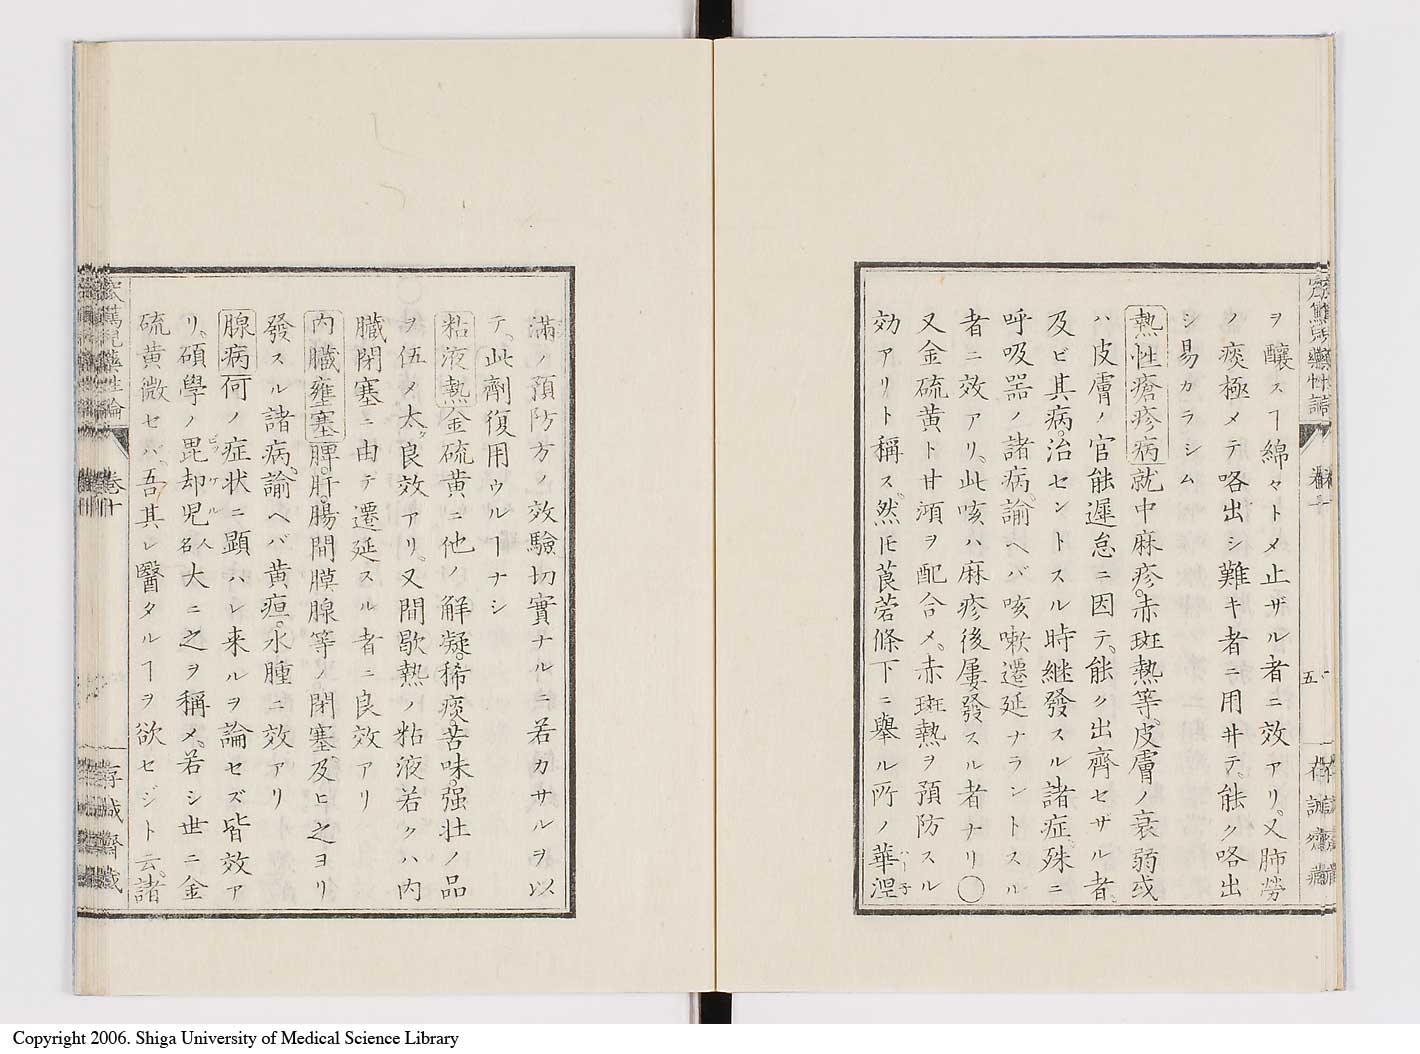 ヲ釀スヿ綿々トメ止ザル者ニ效アリ。又肺勞
ノ痰極メテ咯出シ難キ者ニ用井テ。能ク咯出
シ易カラシム
熱性瘡疹病就中麻疹。赤斑熱等。皮膚ノ衰弱或
ハ皮膚ノ官能遲怠ニ因テ。能ク出齊セザル者。
及ビ其病。治セントスル時継發スル諸症。殊ニ
呼吸器ノ諸病。諭ヘバ咳嗽遷延ナラントスル
者ニ效アリ。此咳ハ麻疹後屢發スル者ナリ〇
又金硫黄ト甘澒ヲ配合メ。赤斑熱ヲ預防スル
効アリト稱ス。然𪜈莨菪條下ニ舉ル所ノ華涅
滿ノ預防方ノ效驗切實ナルニ若カサルヲ以
テ。此劑復用ウルヿナシ
粘液熱金硫黄ニ他ノ解凝。稀痰。苦味。强壮ノ品
ヲ伍メ太良效アリ。又間歇熱ノ粘液若クハ内
臓閉塞ニ由テ遷延スル者ニ良效アリ
内臓壅塞脾。肝。腸間膜腺等ノ閉塞。及ヒ之ヨリ
發スル諸病。諭ヘバ黄疸。水腫ニ效アリ
腺病何ノ症状ニ顕ハレ来ルヲ論セズ皆效ア
リ。碩學ノ毘却児人名大ニ之ヲ稱メ。若シ世ニ金
硫黄微セバ。吾其レ醫タルヿヲ欲セジト云。諸
卷十
五